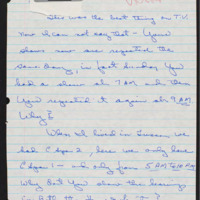 this was the best thing on T.V.
now I can not say that - Your
shows now are repeated the
same day, in fact Sunday you
had a show at 7 AM and then
you repeated it again at 9 AM
Why?
When I lived in Tucson we
had C Span 2, here we only have
C Span 1 - and only from 5 PM to 10 PM
Why don't you show the hearing